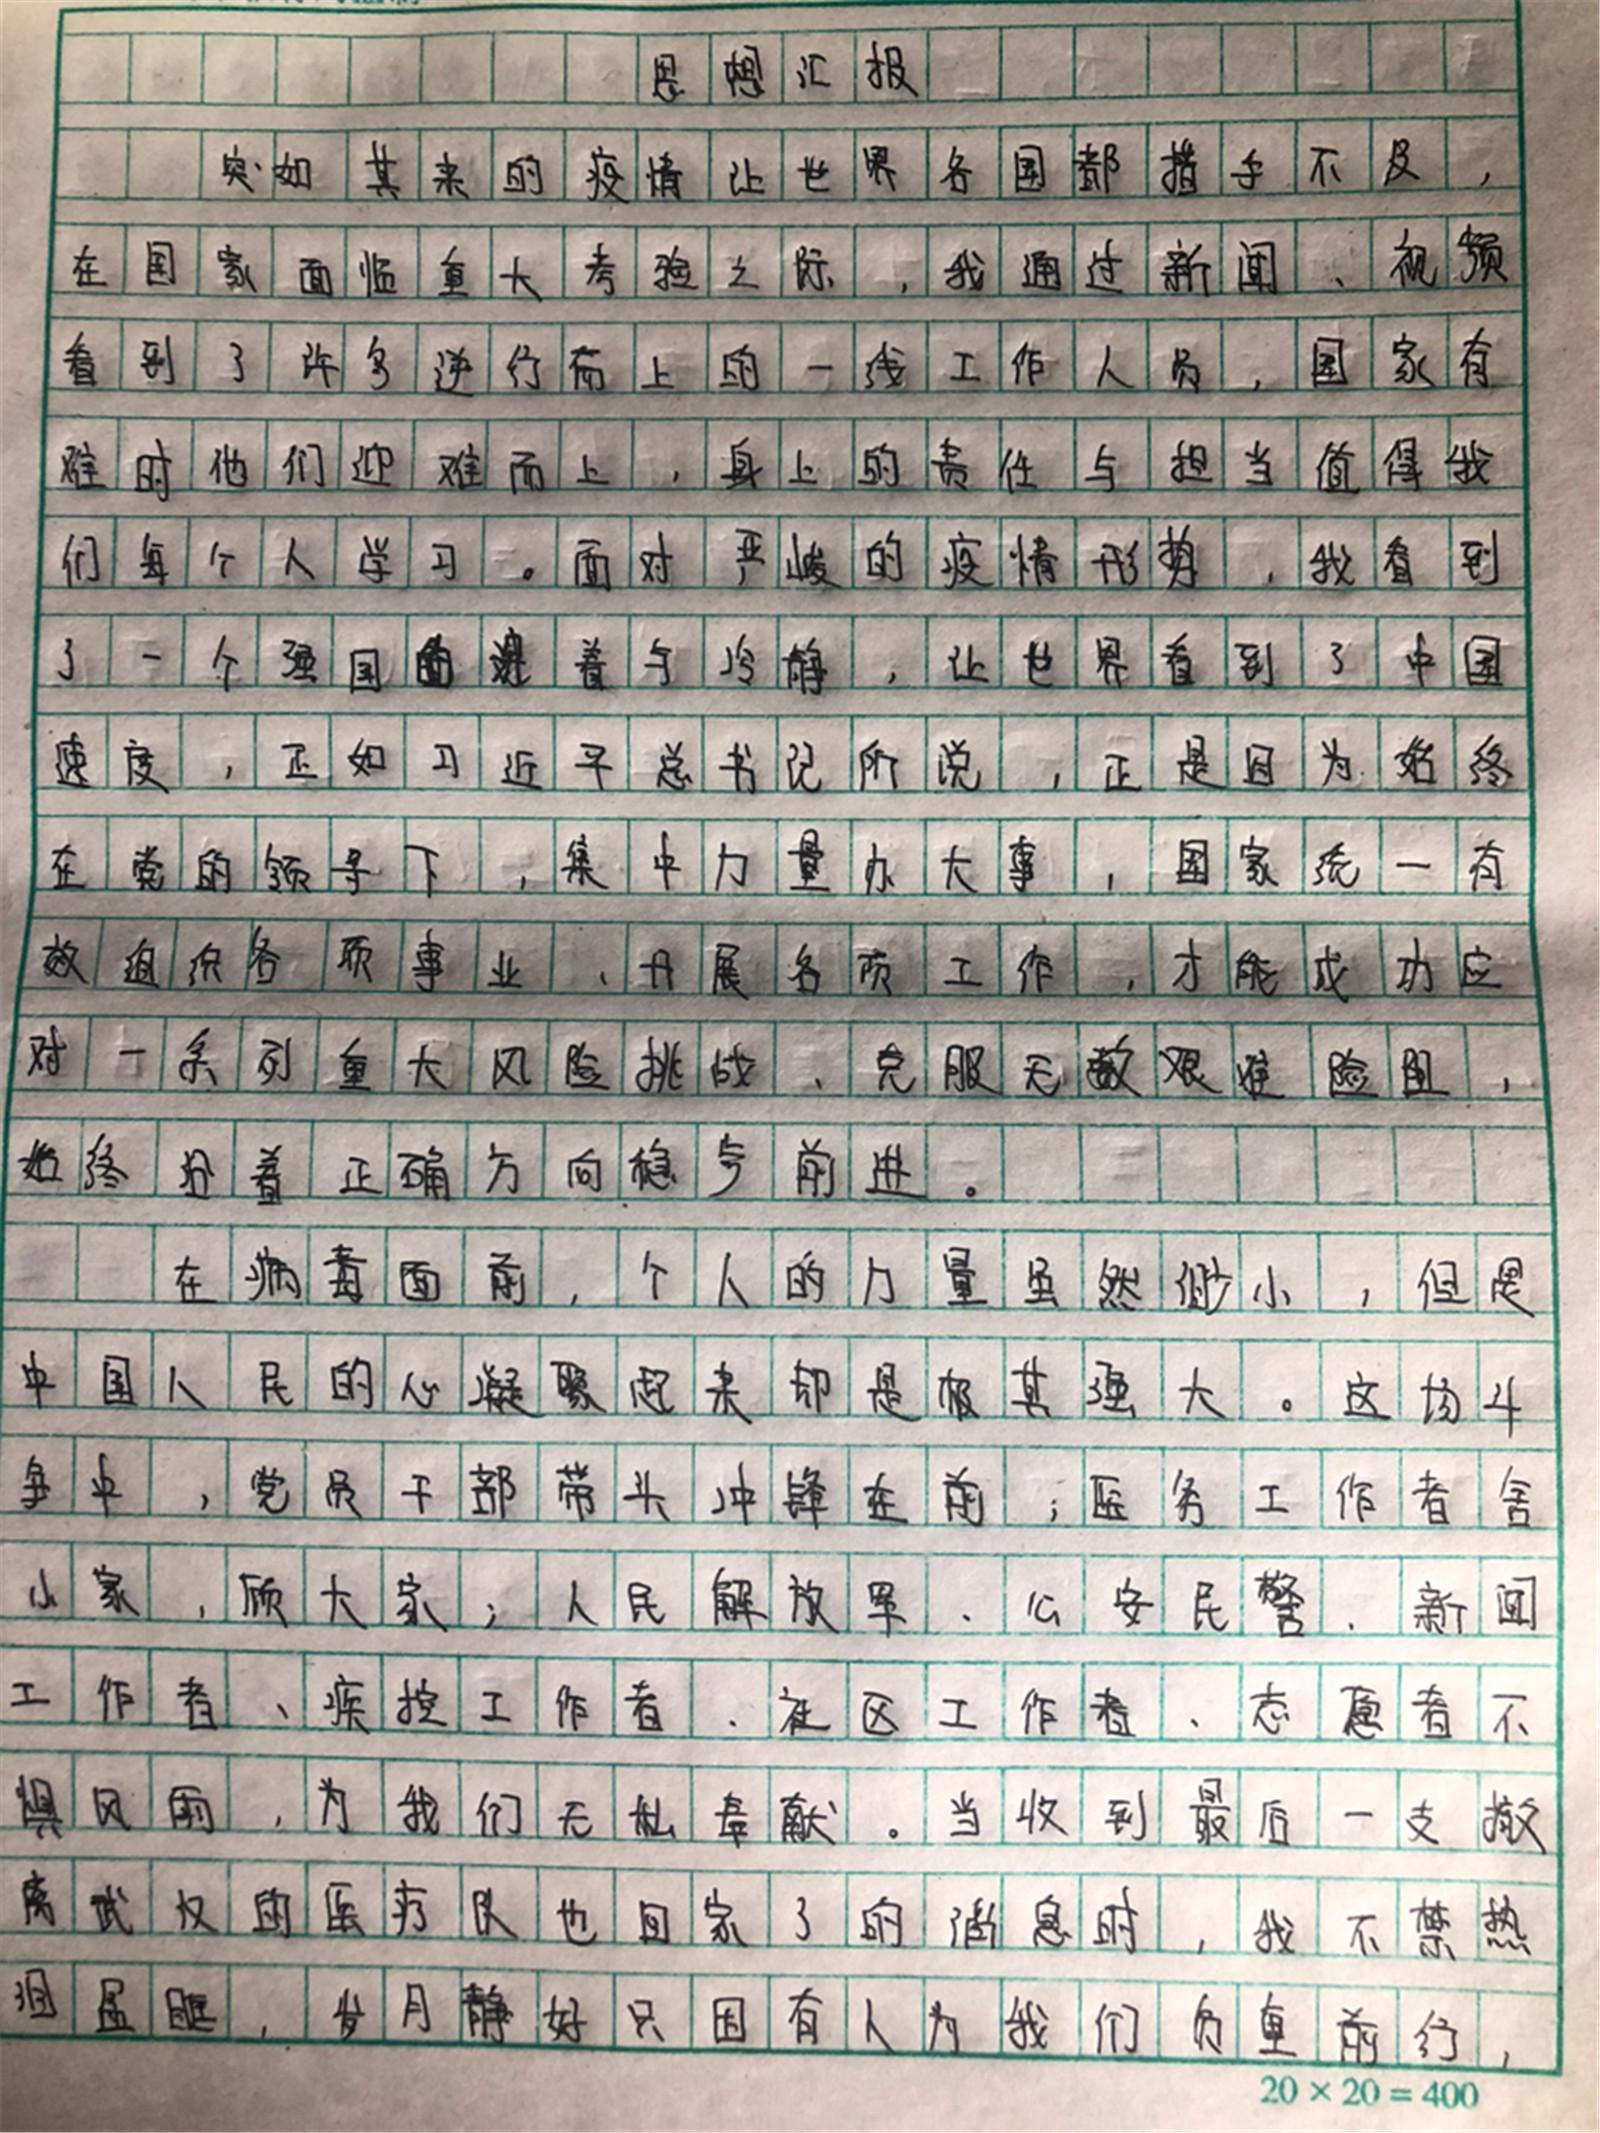 思想汇报
突如其来的疫情让世界各国都措手不及，
在国家面临重大考验之际，我通过新闻、视频
看到了许多逆行而上的一线工作人员，国家有
难时他们迎难而上，身上的责任与担当值得我
们每个人学习。面对严峻的疫情形势，我看到
了一个强国的沉着与冷静，让世界看到了中国
速度，正如习近平总书记所说，正是因为始终
在党的领导下，集中力量办大事，国家统一有
效组织各项事业、开展各项工作，才能成功应
对一系列重大风险挑战、克服无数艰难险阻，
始终沿着正确方向稳步前进。
在病毒面前，个人的力量虽然渺小，但是
中国人民的心凝聚起来却是极其强大。这场斗
争中，党员干部带头冲锋在前；医务工作者舍
小家，顾大家；人民解放军、公安民警、新闻
工作者、疾控工作者、社区工作者、志愿者不
惧风雨，为我们无私奉献。当收到最后一支撤
离武汉的医疗队也回家了的消息时，我不禁热
泪盈眶，岁月静好只因有人为我们负重前行，
20×20=400